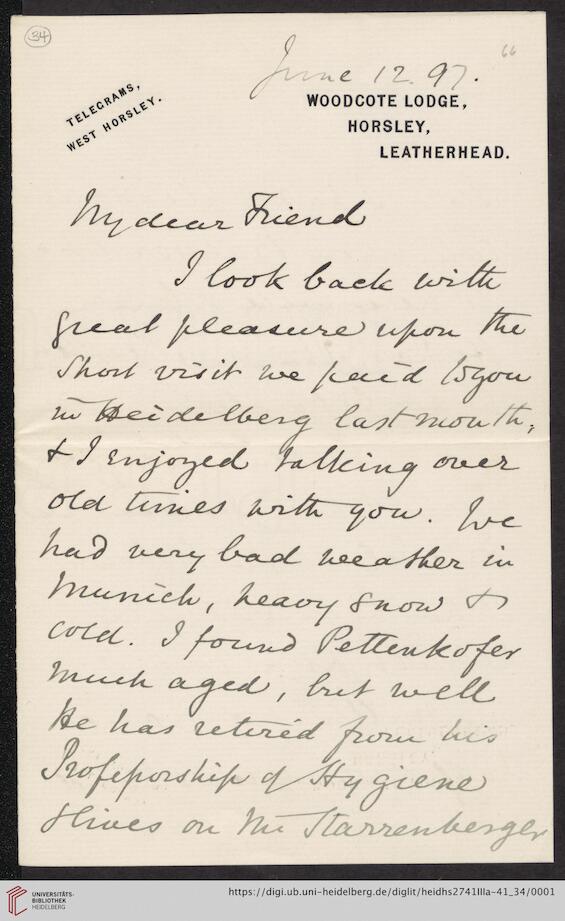 34
66
June 12. 97.
TELEGRAMS,
WEST HORSLEY.
WOODCOTE LODGE,
HORSLEY,
LEATHERHEAD.
My dear Friend
I look back with
great pleasure upon the
short visit we paid to you
in Heidelberg last month,
& I enjoyed talking over
old times with you. We
had very bad weather in
Munich, heavy snow &
cold. I found Pettenkofer
much aged, but well
He has retired from his
Professorship of Hygiene
& lives on the Starrenberger
UNIVERSITÄTS-
BIBLIOTHEK
HEIDELBERG
https://digi.ub.uni-heidelberg.de/diglit/heidhs2741IIIa-41_34/0001